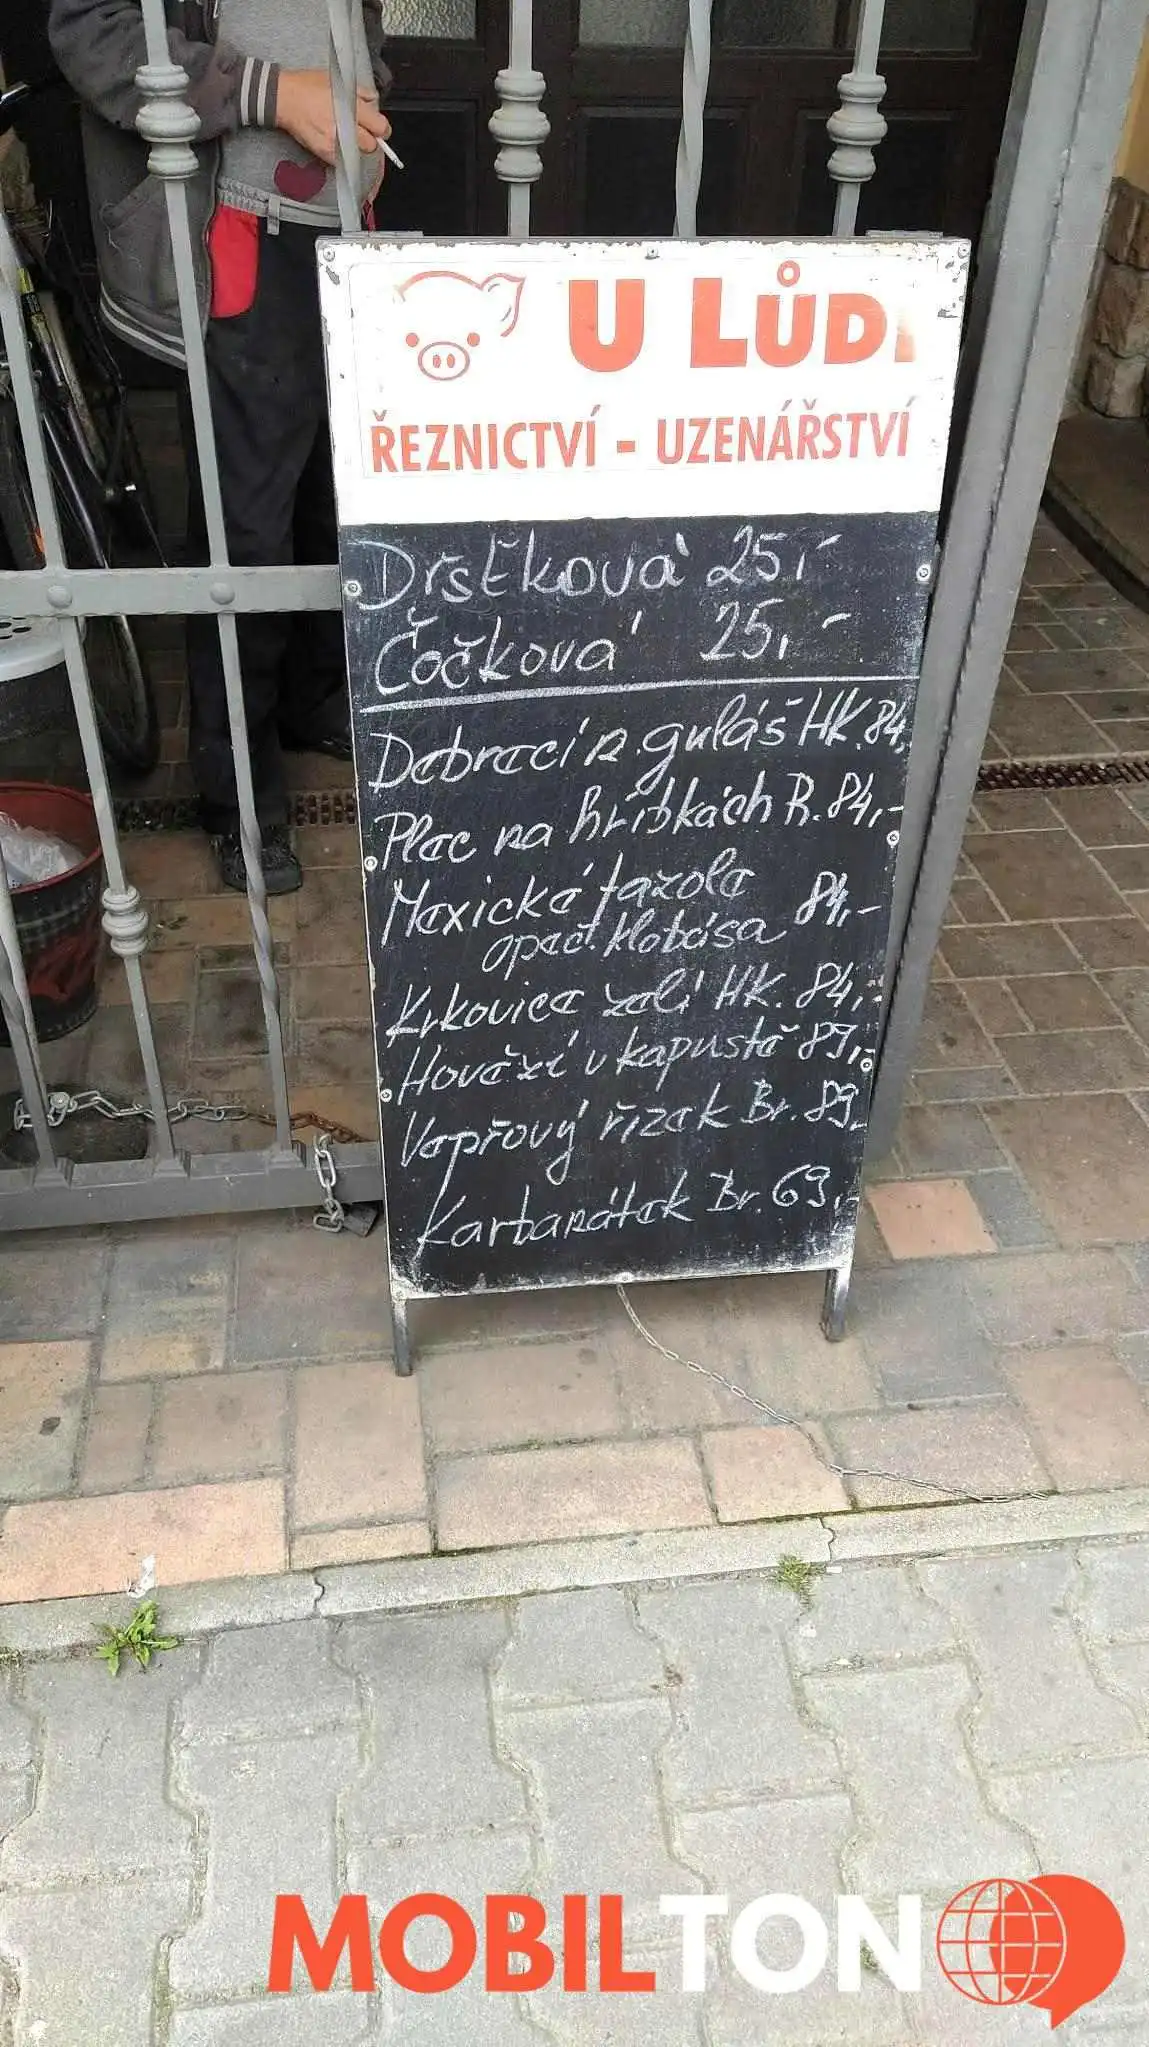 U LŮDI
ŘEZNICTVÍ - UZENÁŘSTVÍ
Drštková 25,-
Čočková 25,-
Debrecín. guláš HK. 84,
Plec na hříbkách R. 84,-
Mexická fazole 84,-
opeč. klobása
Krkovice zelí HK. 84,-
Hovězí v kapustě 89,-
Vepřový řízek Br. 89,-
Karbanátek Br. 69,-
MOBILTON